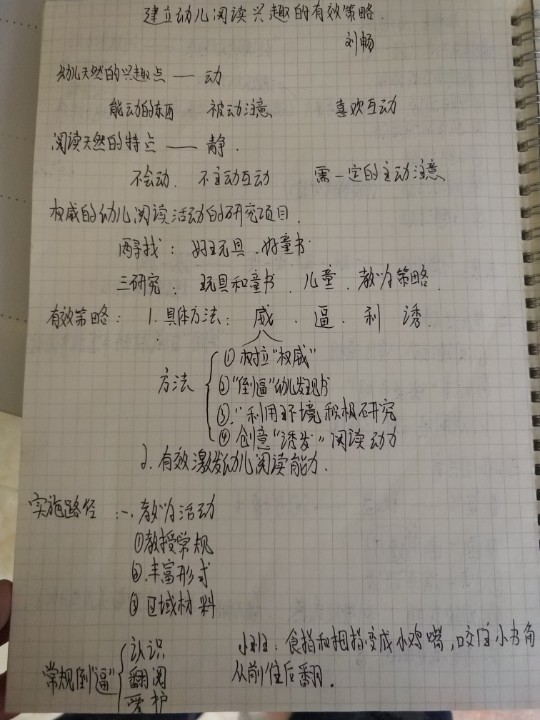 建立幼儿阅读兴趣的有效策略.
刘畅
幼儿天然的兴趣点 —— 动
能动的东西 被动注意 喜欢互动
阅读天然的特点 —— 静.
不会动. 不主动互动 需一定的主动注意
权威的幼儿阅读活动的研究项目.
两寻找: 好玩具. 好童书
三研究: 玩具和童书. 儿童. 教师策略.
有效策略: 1.具体方法: 威. 逼. 利 诱.
方法
①树立"权威"
②"倒逼"幼儿发现书
③"利用环境积极研究
④创意"诱发"阅读动力
2.有效激发幼儿阅读能力.
实施路径:一.教师活动
①教授常规
②丰富形式
③区域材料
常规倒"逼"
认识
翻阅
爱护
小班: 食指和拇指变成小鸡嘴,咬住小书角
从前往后翻.